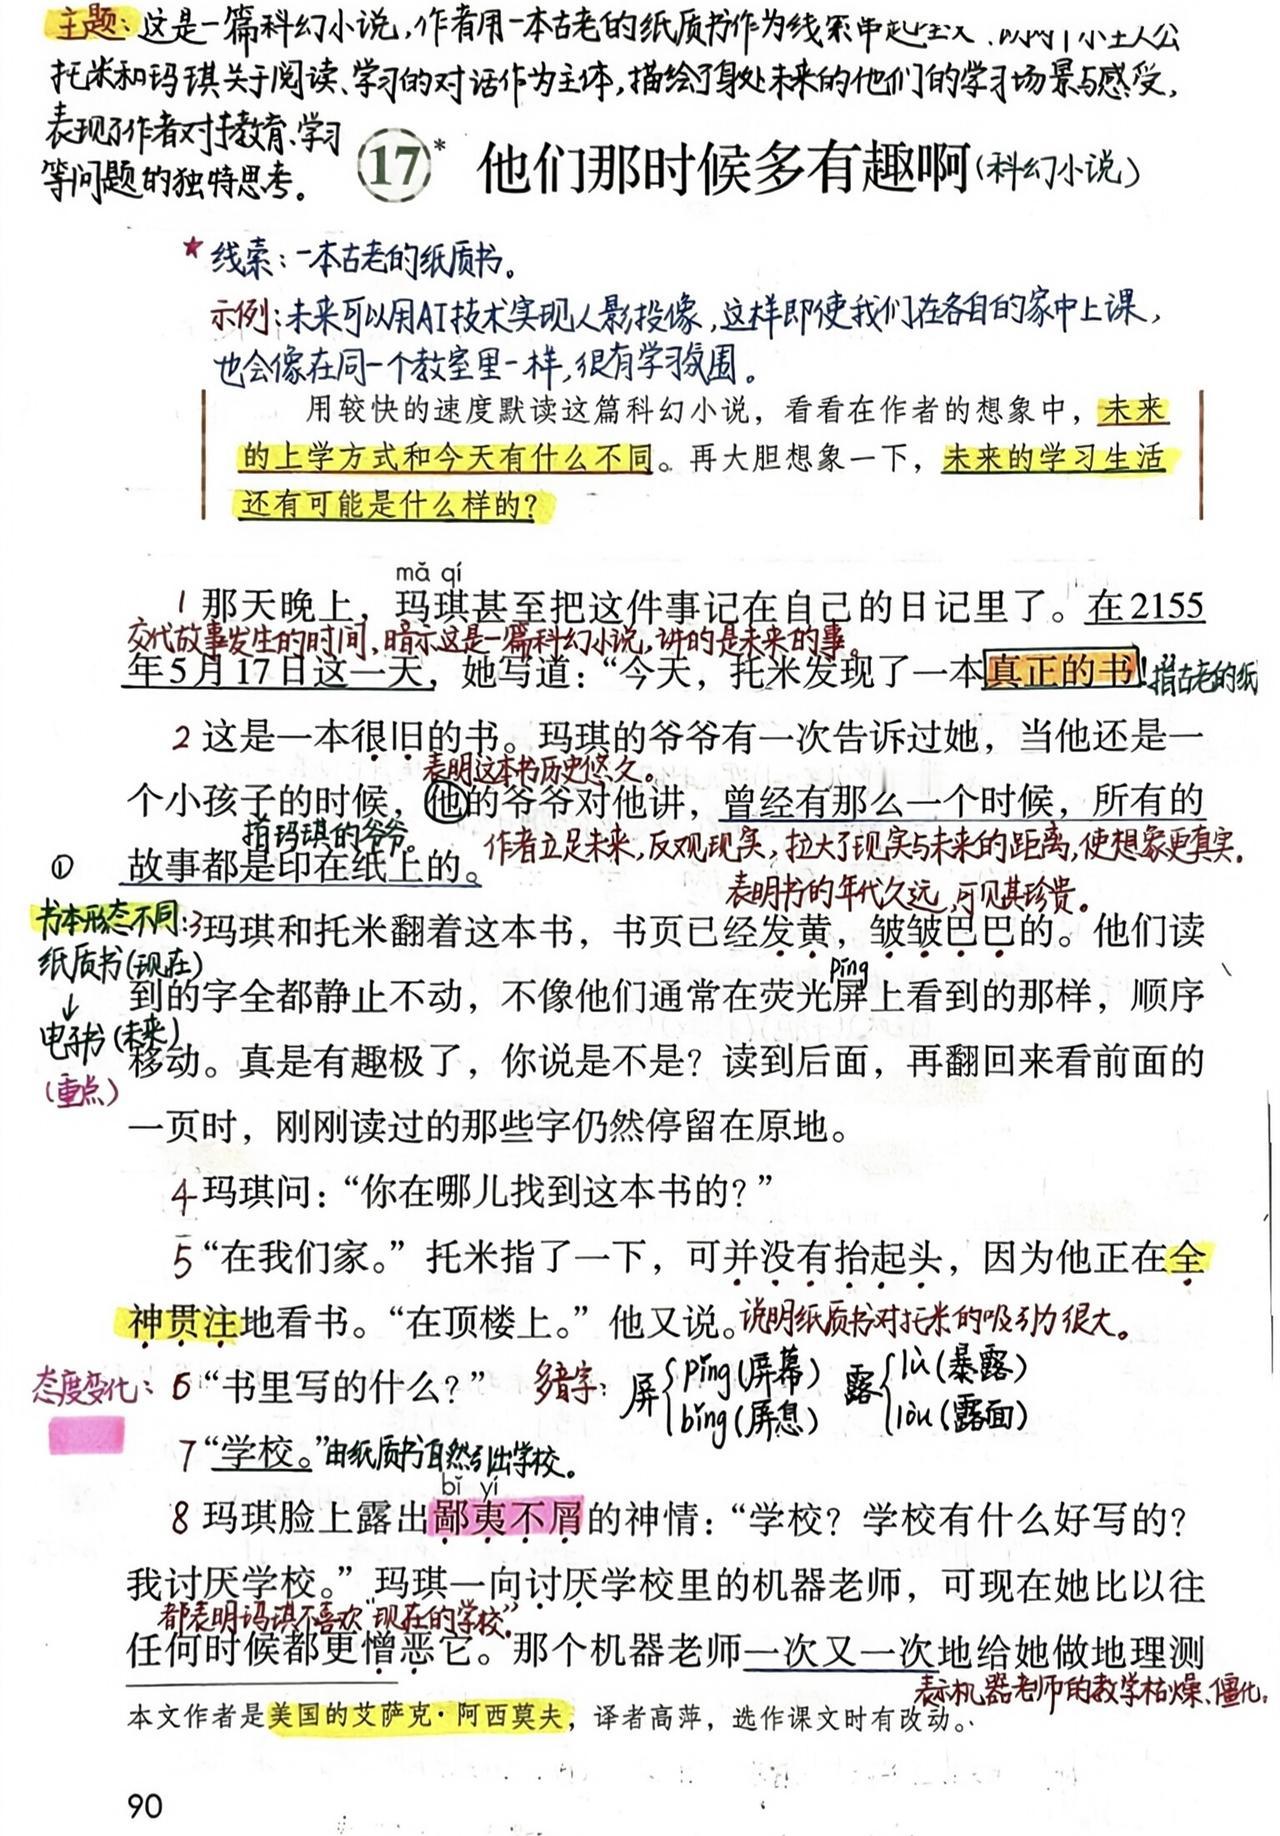 主题:这是一篇科幻小说,作者用一本古老的纸质书作为线索串起全文,小主人公
托米和玛琪关于阅读、学习的对话作为主体,描绘了身处未来的他们的学习场景与感受,
表现了作者对于教育、学习
等问题的独特思考。
17* 他们那时候多有趣啊(科幻小说)
★线索:一本古老的纸质书。
示例:未来可以用AI技术实现人影投像,这样即使我们在各自的家中上课,
也会像在同一个教室里一样,很有学习氛围。
用较快的速度默读这篇科幻小说,看看在作者的想象中,未来
的上学方式和今天有什么不同。再大胆想象一下,未来的学习生活
还有可能是什么样的?
mǎ qí
1 那天晚上,玛琪甚至把这件事记在自己的日记里了。在2155
交代故事发生的时间、暗示这是一篇科幻小说,讲的是未来的事。
年5月17日这一天,她写道:“今天,托米发现了一本真正的书!”
指古老的纸
2 这是一本很旧的书。玛琪的爷爷有一次告诉过她,当他还是一
表明这本书历史悠久。
个小孩子的时候,他的爷爷对他讲,曾经有那么一个时候,所有的
指玛琪的爷爷。
作者立足未来,反观现实,拉大了现实与未来的距离,使想象更真实。
① 故事都是印在纸上的。
表明书的年代久远,可见其珍贵。
书本形态不同:
纸质书(现在)
↓
电子书(未来)
(重点)
3 玛琪和托米翻着这本书,书页已经发黄,皱皱巴巴的。他们读
píng
到的字全都静止不动,不像他们通常在荧光屏上看到的那样,顺序
移动。真是有趣极了,你说是不是?读到后面,再翻回来看前面的
一页时,刚刚读过的那些字仍然停留在原地。
4 玛琪问:“你在哪儿找到这本书的?”
5 “在我们家。”托米指了一下,可并没有抬起头,因为他正在全
神贯注地看书。“在顶楼上。”他又说。
说明纸质书对托米的吸引力很大。
态度变化:
6 “书里写的什么?”
多音字: 屏{píng(屏幕) bǐng(屏息) 露{lù(暴露) lòu(露面)
7 “学校。”由纸质书自然引出学校。
bǐ yí
8 玛琪脸上露出鄙夷不屑的神情:“学校?学校有什么好写的?
我讨厌学校。”玛琪一向讨厌学校里的机器老师,可现在她比以往
都表明玛琪不喜欢“现在的学校”
任何时候都更憎恶它。那个机器老师一次又一次地给她做地理测
表示机器老师的教学枯燥、僵化。
本文作者是美国的艾萨克·阿西莫夫,译者高萍,选作课文时有改动。
90